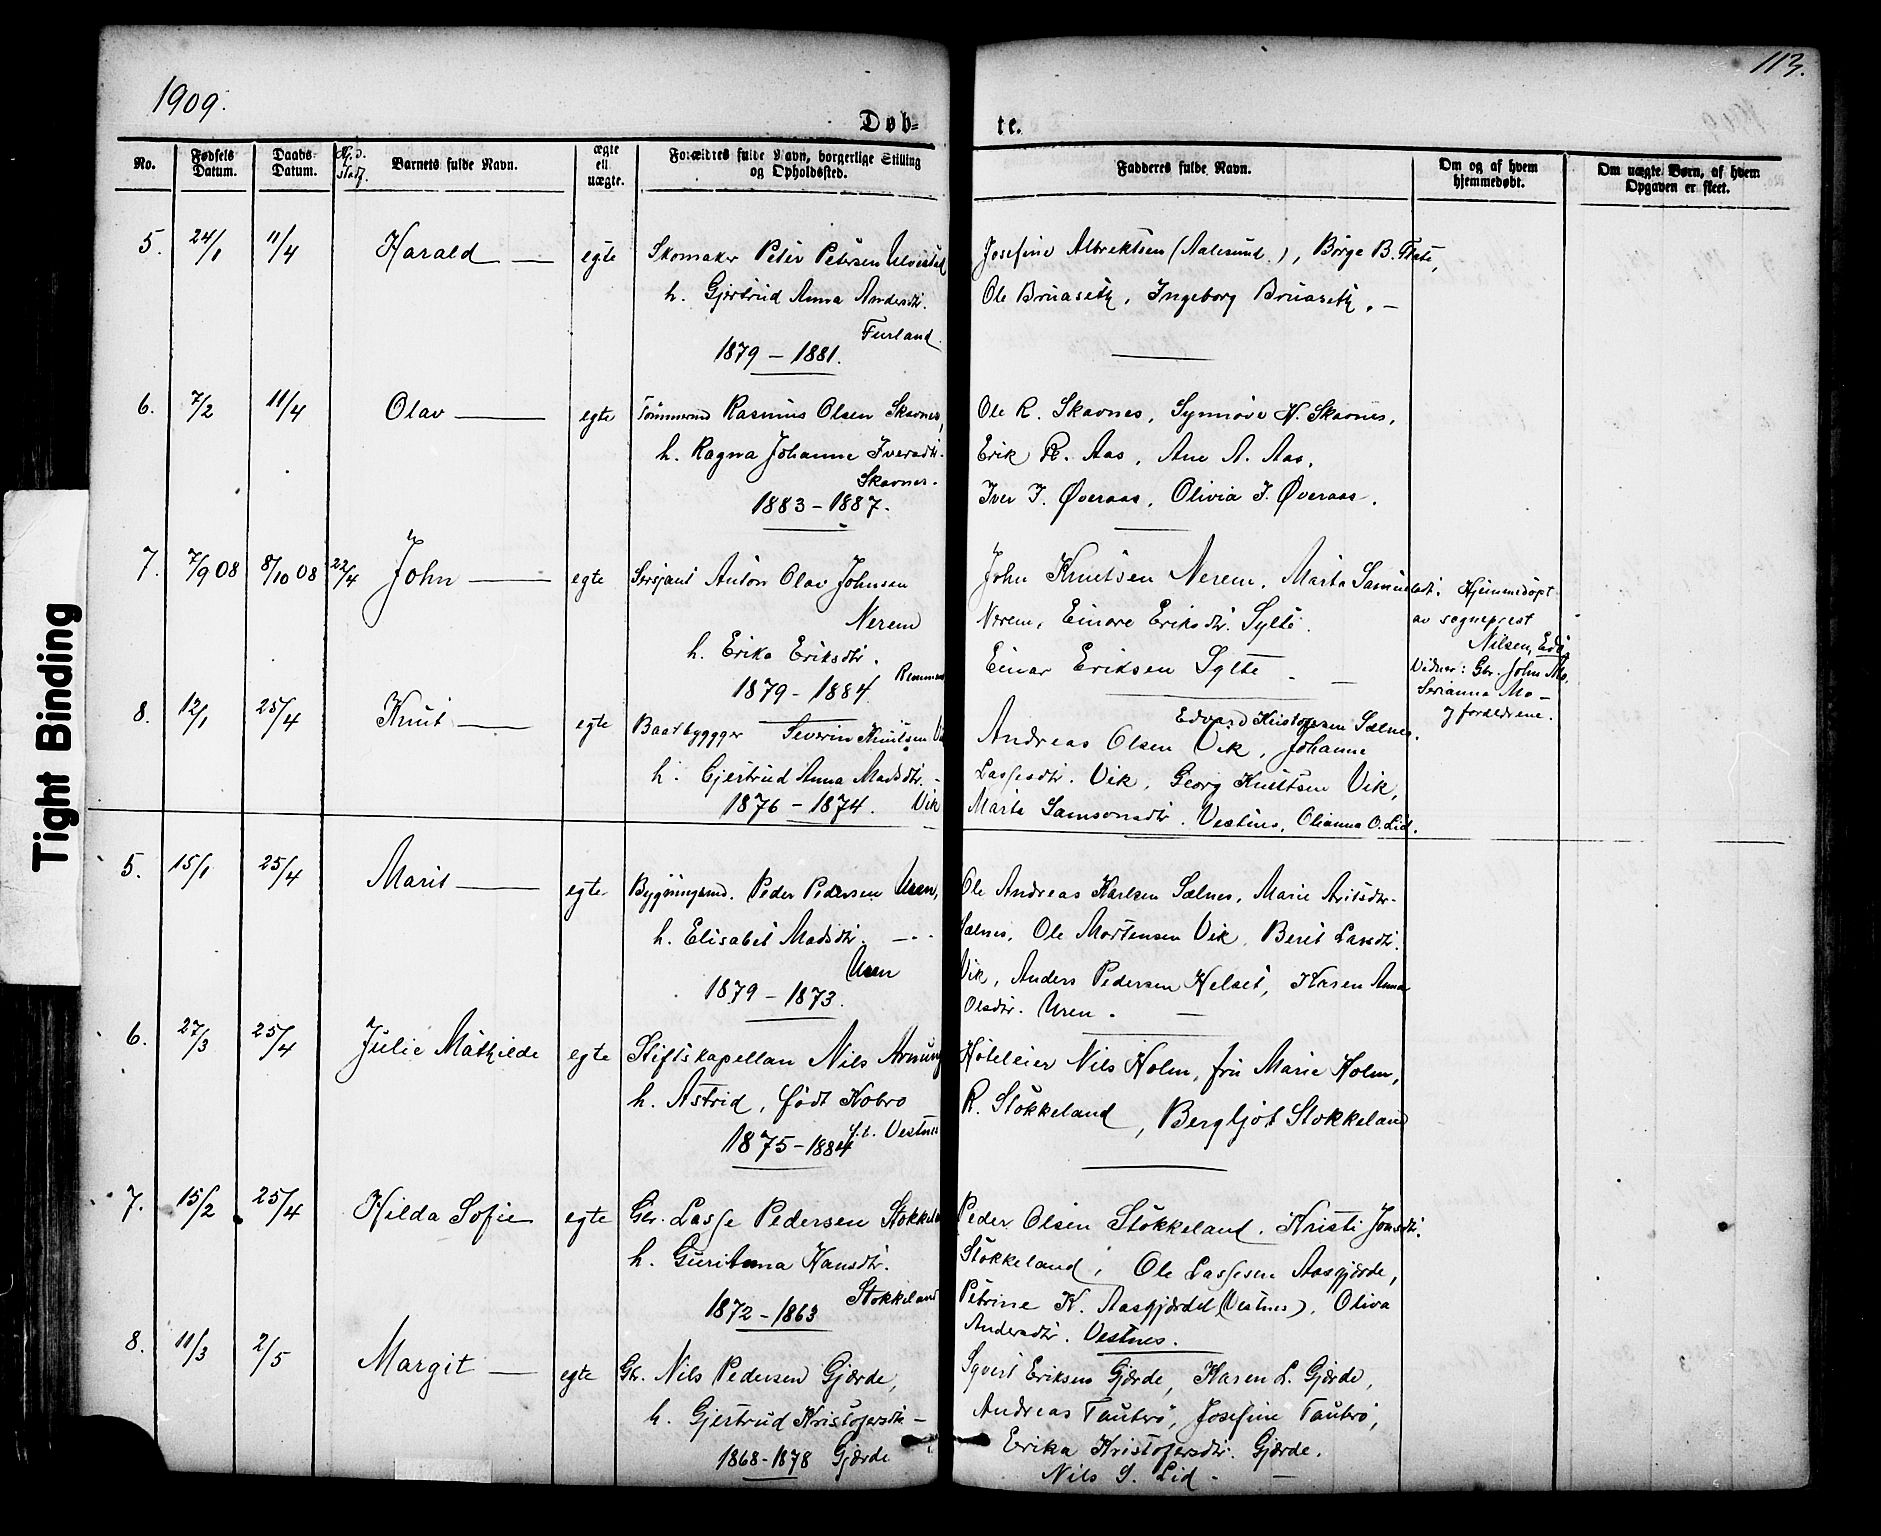 113.
1909.
Døb- te.
No. Fødsels Datum. Daabs- Datum. Barnets fulde Navn. ægte ell. uægte. Forældres fulde Navn, borgerlige Stilling og Opholdssted. Fadderes fulde Navn. Om og af hvem hjemmedøbt. Om uægte Børn, af hvem Opgaven er skeet.
5. 24/1 11/4 Harald — egte Skomaker Peter Petersen
h. Gjertrud Anna Andersdtr.
Furland.
1879 – 1881.
Josefine Albrektsen (Aalesund.), Børge B.
Ole Bruaseth, Ingeborg Bruaseth. –
6. 7/2 11/4 Olav — egte Tømmermd Rasmus Olsen Skavnes,
h. Ragna Johanne Iversdtr.
Skavnes.
1883 – 1887.
Ole R. Skavnes, Synnøve H. Skavnes,
Erik R. Aas, Ane A. Aas,
Iver I. Øveraas, Olivia I. Øveraas.
7. 7/9 08 8/10 08 22/4 John — egte Sersjant Anton Olav Johnsen
Nerem
h. Erika Eriksdtr.
Remmem
1879 – 1884.
John Knutsen Nerem, Marta Samuelsdtr.
Nerem, Einare Eriksdtr. Sylte.
Einar Eriksen Sylte –
Hjemmedøpt
av sogneprest
Nilsen,
Vidner: Gbr. John Mo,
Serianna Mo –
og forældrene.
8. 12/1 25/4 Knut — egte Baatbyggger Severin Knutsen Vik
h. Gjertrud Anna Madsdtr. –
1876 – 1874. Vik
Edvard Kristofersen Sælnes.
Andreas Olsen Vik, Johanne
Lassesdtr. Vik, Georg Knutsen Vik,
Marte Samsonsdtr. Vestnes, Olianna O. Lid.
5. 15/1 25/4 Marit — egte Bygningsmd. Peder Pedersen Uren,
h. Elisabet Madsdtr. –
Uren
1879 – 1873.
Ole Andreas Karlsen Sælnes, Marie
Sælnes, Ole Mortensen Vik, Berit Larsdtr.
Vik, Anders Pedersen Helset, Karen Anna
Olsdtr. Uren. –
6. 27/3 25/4 Julie Mathilde egte Stiftskapellan Nils Arnung
h. Astrid, født Kobro
f.t. Vestnes
1875 – 1884
Hoteleier Nils Holm, fru Marie Holm,
R. Stokkeland, Bergljot Stokkeland
7. 15/2 25/4 Hilda Sofie egte Gbr. Lasse Pedersen Stokkeland
h. Guri Anna Hansdtr.
Stokkeland
1872 – 1863
Peder Olsen Stokkeland, Kristi Jonsdtr.
Stokkeland, Ole Lassesen Aasgjærde,
Petrine K. Aasgjærdet (Vestnes), Oliva
Andersdtr. Vestnes.
8. 11/3 2/5 Margit — egte Gbr. Nils Pedersen Gjærde,
h. Gjertrud Kristofersdtr –
1868 – 1878 Gjærde
Syvert Eriksen Gjærde, Karen L. Gjærde,
Andreas Tautrø, Josefine Tautrø,
Erika Kristofersdtr. Gjærde.
Nils S. Lid. –
Tight Binding